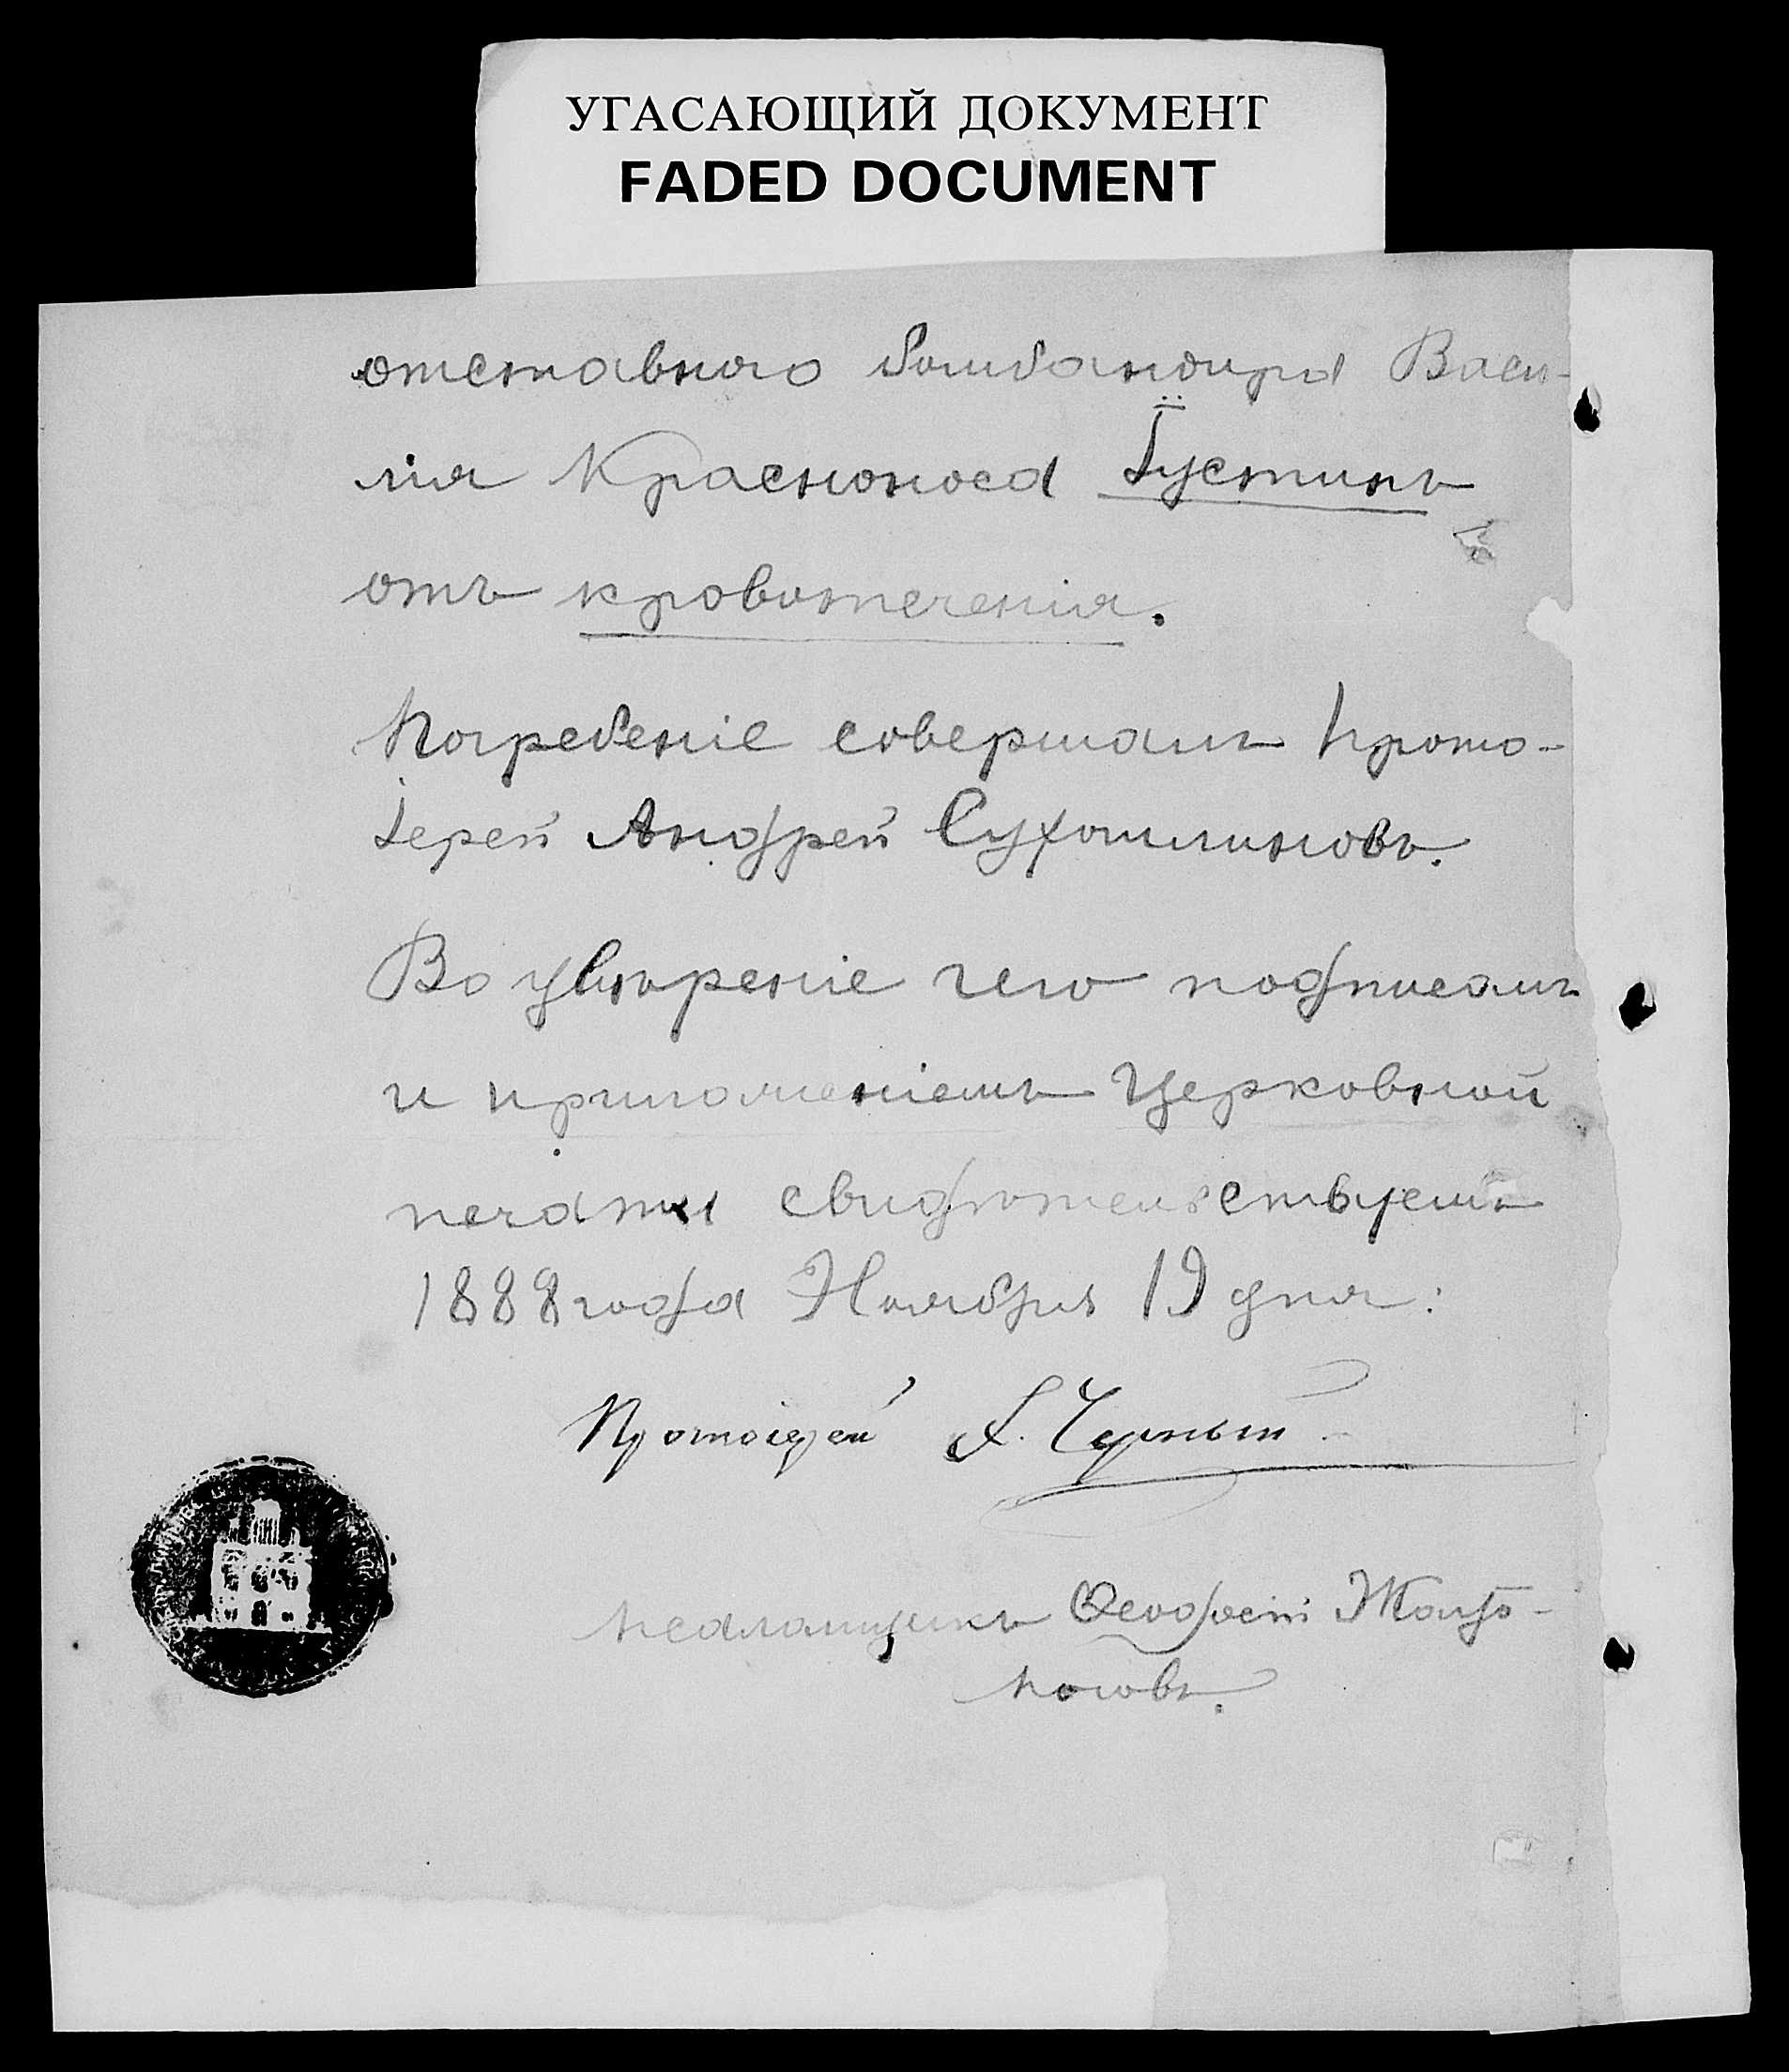 УГАСАЮЩИЙ ДОКУМЕНТ
FADED DOCUMENT
отставного бомбандира Васи-
лія Красноноса Іустинъ
отъ кровотеченія.
Погребеніе совершалъ прото-
іерей Андрей Сухомлиновъ.
Во увѣреніе чего подписомъ
и приложеніемъ Церковной
печати свидѣтельствуемъ
1888 года Ноября 19 дня:
Протоіерей А. Черный
псаломщикъ Ѳеодосій